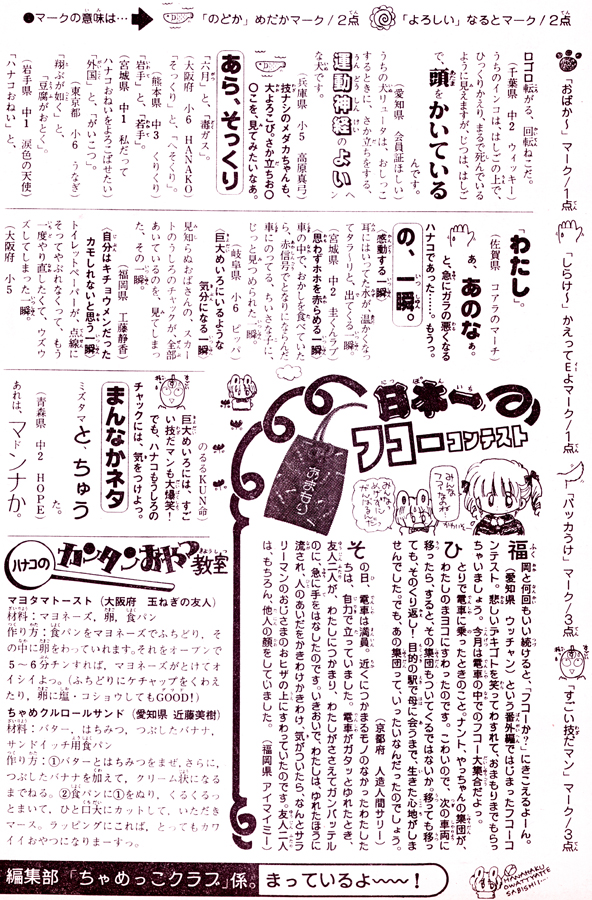 ●マークの意味は…
「のどか」めだかマーク/2点
「よろしい」なるとマーク/2点
「おばか〜」マーク/1点
「しらけ〜」かえってEよマーク/1点
「バッカうけ」マーク/3点
「すごい技だマン」マーク/3点
ロゴロ転がる、回転ねこだ。
(千葉県 中2 ウィッキー)
うちのインコは、はしごの上で、
ひっくりかえり、まるで死んでいる
ように見えますが、じつは、はしご
で、頭をかいている
んです。
(愛知県 会員証ほしい)
うちの犬ピリュータは、おしっこ
するときに、さか立ちをする、
運動神経のよいヘ
んな犬です。
(兵庫県 小5 高原真弓)
技ナシのメダカちゃんも、
大よろこび。さか立ちお〇
〇こを、見てみたいなあ。
あら、そっくり
「六月」と、「毒ガス」。
(大阪府 小6 HANAKO)
「そっくり」と、「へそくり」。
(熊本県 中3 くりくり)
「岩手」と、「若手」。
(宮城県 中1 私だって
ハナコおねいをよろこばせたい)
「外国」と、「がいこつ」。
(東京都 小6 うなぎ)
「翔ぶが如く」と、
「豆腐がおとく」。
(岩手県 中1 涙色の天使)
「ハナコおねい」と、
「わたし」。
(佐賀県 コアラのマーチ)
あ、あのなぁ。
と、急にガラの悪くなる
ハナコであった……。もうっ。
の、一瞬。
感動する一瞬
耳にはいってた水が、温かくなっ
てタラーリと、出てくる一瞬。
(宮城県 中2 圭くんラブ)
思わずホホを赤らめる一瞬
車の中で、おかしを食べていた
ら、赤信号でとなりにならんだ
車にのってる、ちいさな子に、
じっと見つめられた一瞬。
(岐阜県 小6 ピッパ)
巨大めいろにいるような
気分になる一瞬
見知らぬおばさんの、スカー
トのうしろのチャックが、全部
あいているのを、見てしまっ
た、その一瞬。
(福岡県 工藤静香)
自分はキチョウメンだった
カモしれないと思う一瞬
トイレットペーパーが、点線に
そってやぶれなくって、もう
一度やり直したくて、ウズウ
ズしてしまった一瞬。
(大阪府 小5
のるるKUN命)
巨大めいろには、すご
い技だマンも大爆笑!
でも、ハナコもうしろの
チャックには、気をつけよっ。
まんなかネタ
ミズタマと、ちゅう
た。
(青森県 中2 HOPE)
あれは、マドンナか。
日本一つ
フコーコンテスト
おまもり
福岡と何回もいい続けると、「フコーか?」にきこえるよーん。
(愛知県 ウッチャン)という番外編ではじまったフコーコ
ンテスト。悲しいデキゴトを笑ってわすれて、おまもりまでもらっ
ちゃいましょう。今月は電車の中でのフコー大集合だよっ。
ひとりで電車に乗ったときのこと。ナント、やっちゃんの集団が、
わたしのまヨコにすわったのです。こわいので、次の車両に
移ったら、すると、その集団もついてくるではないか。移っても移っ
ても、そのくり返し!目的の駅で母に会うまで、生きた心地がしま
せんでした。でも、あの集団って、いったいなんだったのでしょう。
(京都府 人造人間サリー)
その日、電車は満員。近くにつかまるモノのなかったわたした
ちは、自力で立っていました。電車がガタッとゆれたとき、
友人二人が、わたしにつかまり、わたしがささえてガンバッテル
のに、急に手をはなしたのです。いきおいで、わたしは、ゆれたほうに
流され、人のあいだをかきわけかきわけ、気がついたら、なんとサラ
リーマンのおじさまのおヒザの上にすわっていたのです。友人二人
は、もちろん、他人の顔をしていました。
(福岡県 アイマイミー)
ハナコの
カンタンおやつ教室
マヨタマトースト(大阪府 玉ねぎの友人)
材料:マヨネーズ、卵、食パン
作り方:食パンをマヨネーズでふちどり、そ
の中に卵をわっていれます。それをオーブンで
5〜6分チンすれば、マヨネーズがとけてオ
イシイよっ。(ふちどりにケチャップをくわえ
たり、卵に塩・コショウしてもGOOD!)
ちゃめクルロールサンド(愛知県 近藤美樹)
材料:バター、はちみつ、つぶしたバナナ、
サンドイッチ用食パン
作り方:①バターとはちみつをまぜ、さらに、
つぶしたバナナを加えて、クリーム状になる
までねる。②食パンに①をぬり、くるくるっ
とまいて、ひと口大にカットして、いただき
マース。ラッピングにこれば、とってもカワ
イイおやつになりまーすっ。
編集部「ちゃめっこクラブ」係。まっているよ〜〜!
HANAHAKU
OWATTYATTE
SABISHII…